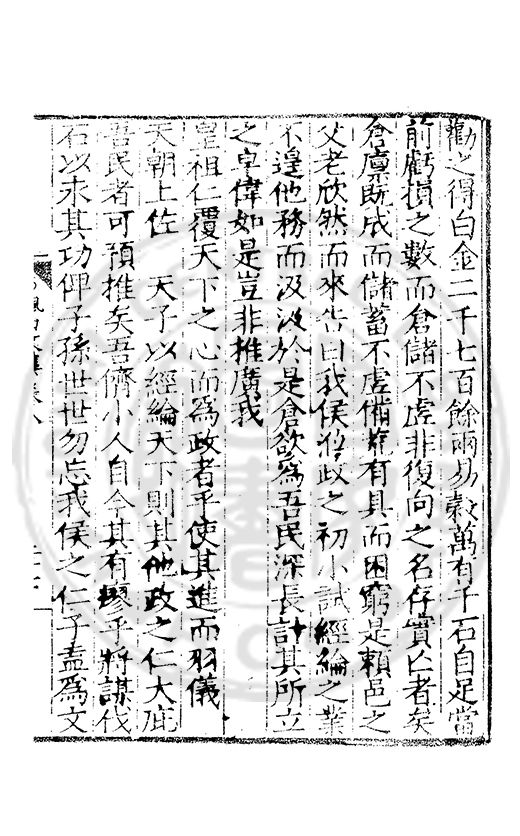 勸之得白金二千七百餘兩易穀萬有千石自足當
前虧損之數而倉儲不虛非復向之名存實亡者矣
倉廪既成而儲蓄不虛備荒有具而困窮是賴邑之
父老欣然而來告曰我侯修政之初小試經綸之業
不遑他務而汲汲於是倉欲為吾民深長計其所立
之卓偉如是豈非推廣我
皇祖仁覆天下之心而為政者乎使其進而羽儀
天朝上佐 天子以經綸天下則其他政之仁大庇
吾民者可預推矣吾儕小人自今其有瘳乎將謀伐
石以永其功俾子孫世世勿忘我侯之仁子盍為文
文集卷八